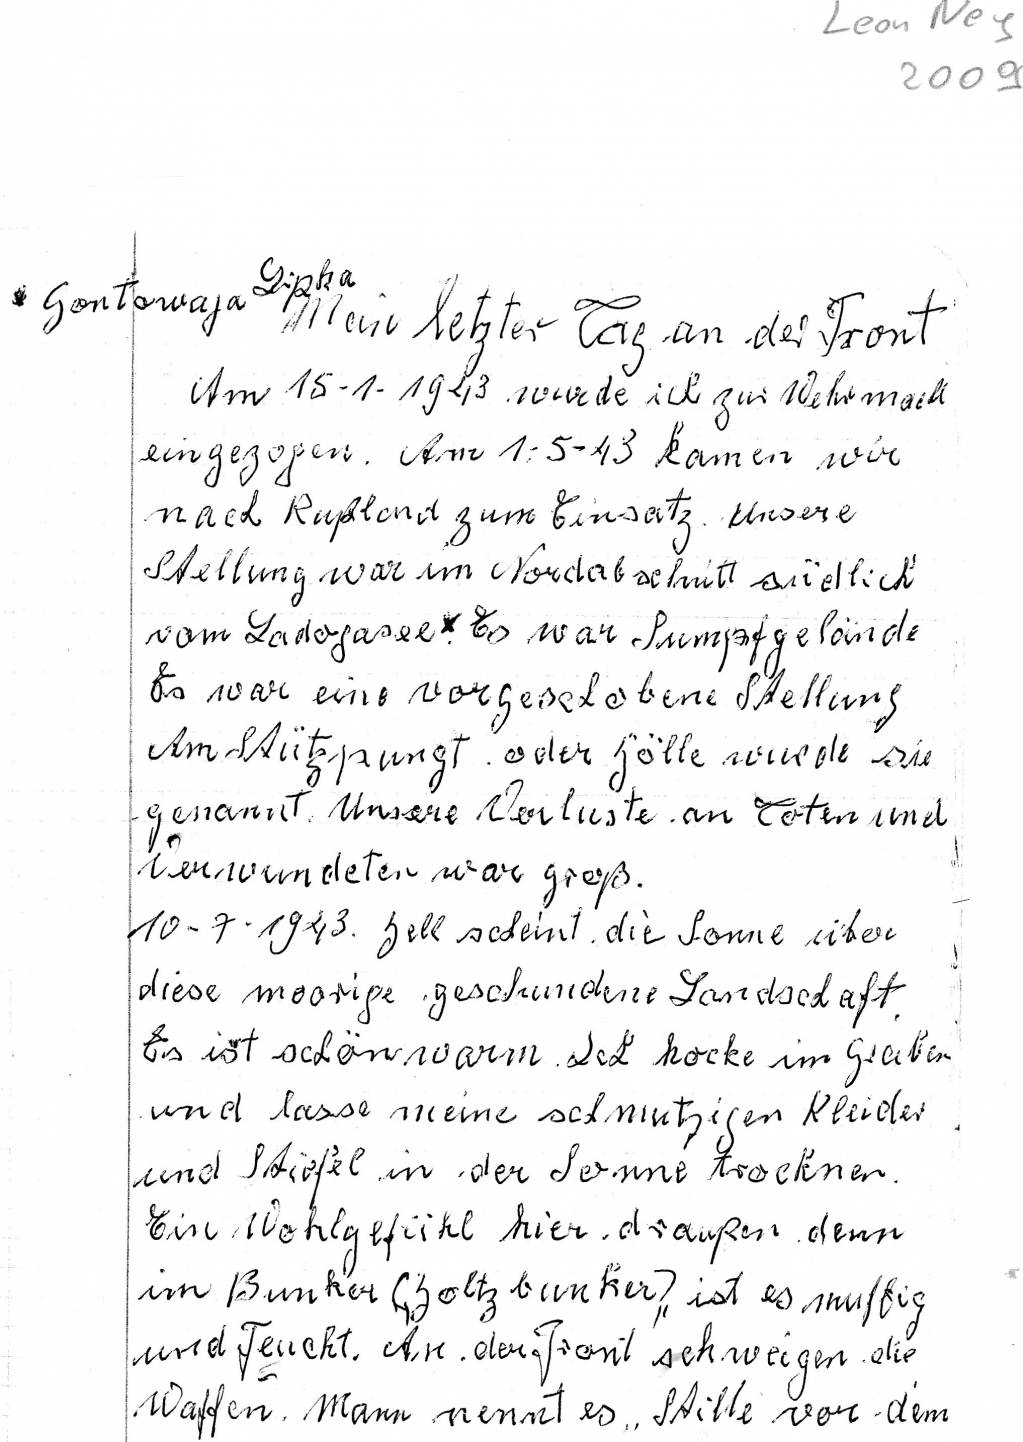 Leon Ney
2009
* Gontowaja Lipka
Mein letzter Tag an der Front
Am 15-1-1943 wurde ich zur Wehrmacht
eingezogen. Am 1-5-43 kamen wir
nach Rußland zum Einsatz. Unsere
Stellung war im Nordabschnitt südlich
vom Ladogasee*. Es war Sumpfgelände
Es war eine vorgeschobene Stellung
Am Stützpungt oder Hölle wurde sie
genannt. Unsere Verluste an Toten und
Verwundeten war groß.
10-7-1943. Hell scheint die Sonne über
diese moorige geschundene Landschaft.
Es ist schön warm. Ich hocke im Graben
und lasse meine schmutzigen Kleider
und Stiefel in der Sonne trocknen.
Ein Wohlgefühl hier draußen denn
im Bunker („Holtzbunker“) ist es muffig
und Feucht. An der Front schweigen die
Waffen. Mann nennt es „Stille vor dem